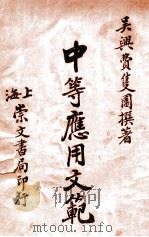 吳興費隻園撰著
中等應用文範
上海
崇文書局印行
www.duxiu.com